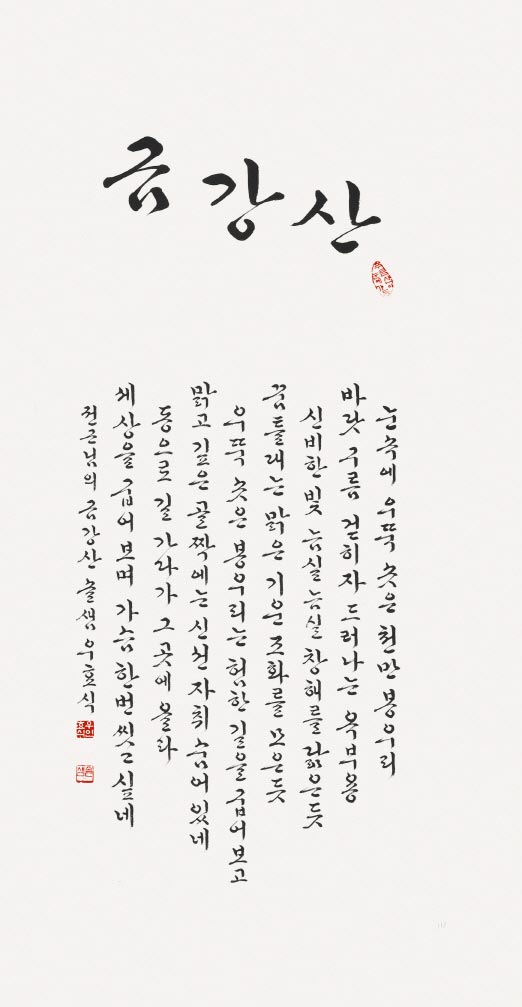 금강산
눈 속에 우뚝 솟은 천만 봉우리
바닷 구름 걷히자 드러나는 옥부용
신비한 빛 늠실 늠실 창해를 닮은듯
꿈틀대는 맑은 기운 조화를 모은듯
우뚝 솟은 봉우리는 험한 길을 굽어보고
맑고 깊은 골짝에는 신선 자취 숨어 있네
동으로 길 가다가 그 곳에 올라
세상을 굽어 보며 가슴 한번 씻고 싶네
전근님의 금강산 솔샘 우효식